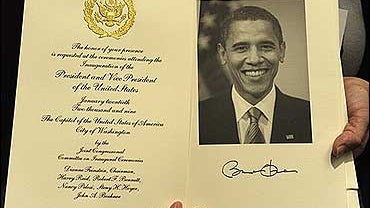 The honor of your presence
is requested at the ceremonies attending the
Inauguration of the
President and Vice President
of the United States
January twentieth
Two thousand and nine
The Capitol of the United States of America
City of Washington
by the
Joint Congressional
Committee on Inaugural Ceremonies
Dianne Feinstein, Chairman,
Harry Reid, Robert F. Bennett,
Nancy Pelosi, Steny H. Hoyer,
John A. Boehner